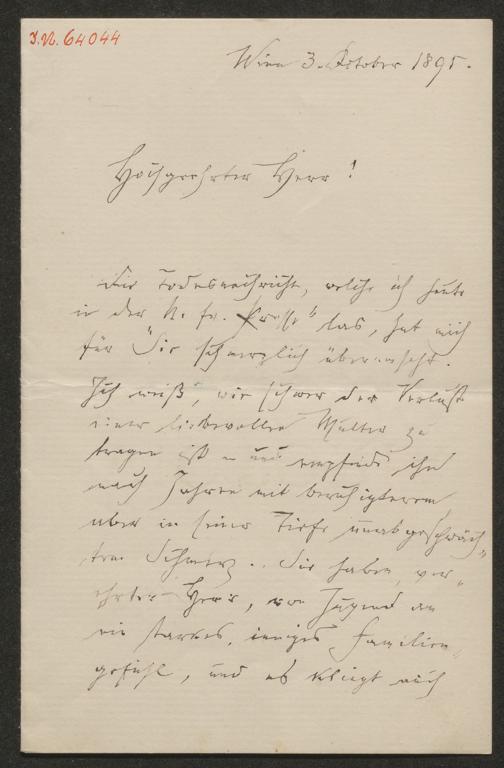 J.N. 64044
Wien 3. October 1895.
Hochgeehrter Herr!
Die Todesnachricht, welche ich heute
in der N. fr. Presse" las, hat mich
für Sie schmerzlich überrascht.
Ich weiß, wie schwer der Verlust
einer liebevollen Mutter zu
tragen ist und empfinde ihn
nach Jahren mit beruhigterem
aber in seiner Tiefe unabgeschwäch"
tem Schmerz. Sie haben, ver"
ehrter Herr, von Jugend an
ein starkes, inniges Familien"
gefühl, und es klingt auch